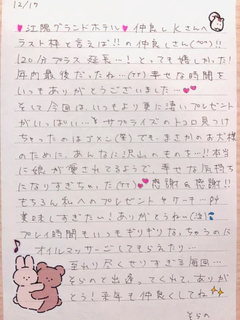 12/17
♥江陽グランドホテル♥ 仲良しKさんへ
ラスト枠と言えば!!の仲良しさん(^^)!!
120分プラス延長…! とっても嬉しかった!
年内最後だったね…(TT) 幸せな時間を
いつもありがとうございました…♥
そして今回は、いつもより更に凄いプレゼント
がいっぱい…♥ サプライズのトコロ見つけ
ちゃったのはゴメン(笑) でも、まさかのお犬様
のために、あんなに沢山のものを…!! 本当
に娘が愛されてるようで、幸せな気持ち
になりすぎちゃた(TT)♥ 感謝&感謝!!
もちろん私へのプレゼントやケーキ…
美味しすぎたー! ありがとうねー
プレイ時間もいつもギリギリなっちゃうのに
オイルマッサージしてもらえたり…
至れり尽くせりすぎる毎回…
そらのと出逢ってくれて、ありが
とう! 来年も仲良くしてね
そらの